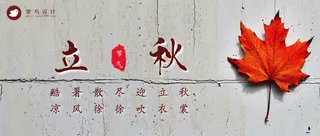 紫鸟设计
立秋
节气
酷暑散尽迎立秋
凉风徐徐吹衣裳